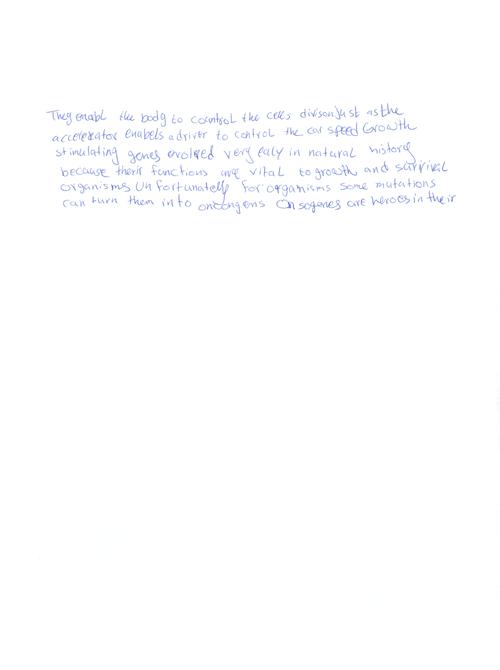 They enabl the body to countrol the cells divison Just as the
accelerator enabels a driver to control the car speed Growth
stimulating genes evolved very ealy in natural history
because their functions are vital to growth and survival
organisms Unfortunatelly for organisms some mutations
can turn them into oncongens Onsogenes are heroes in their